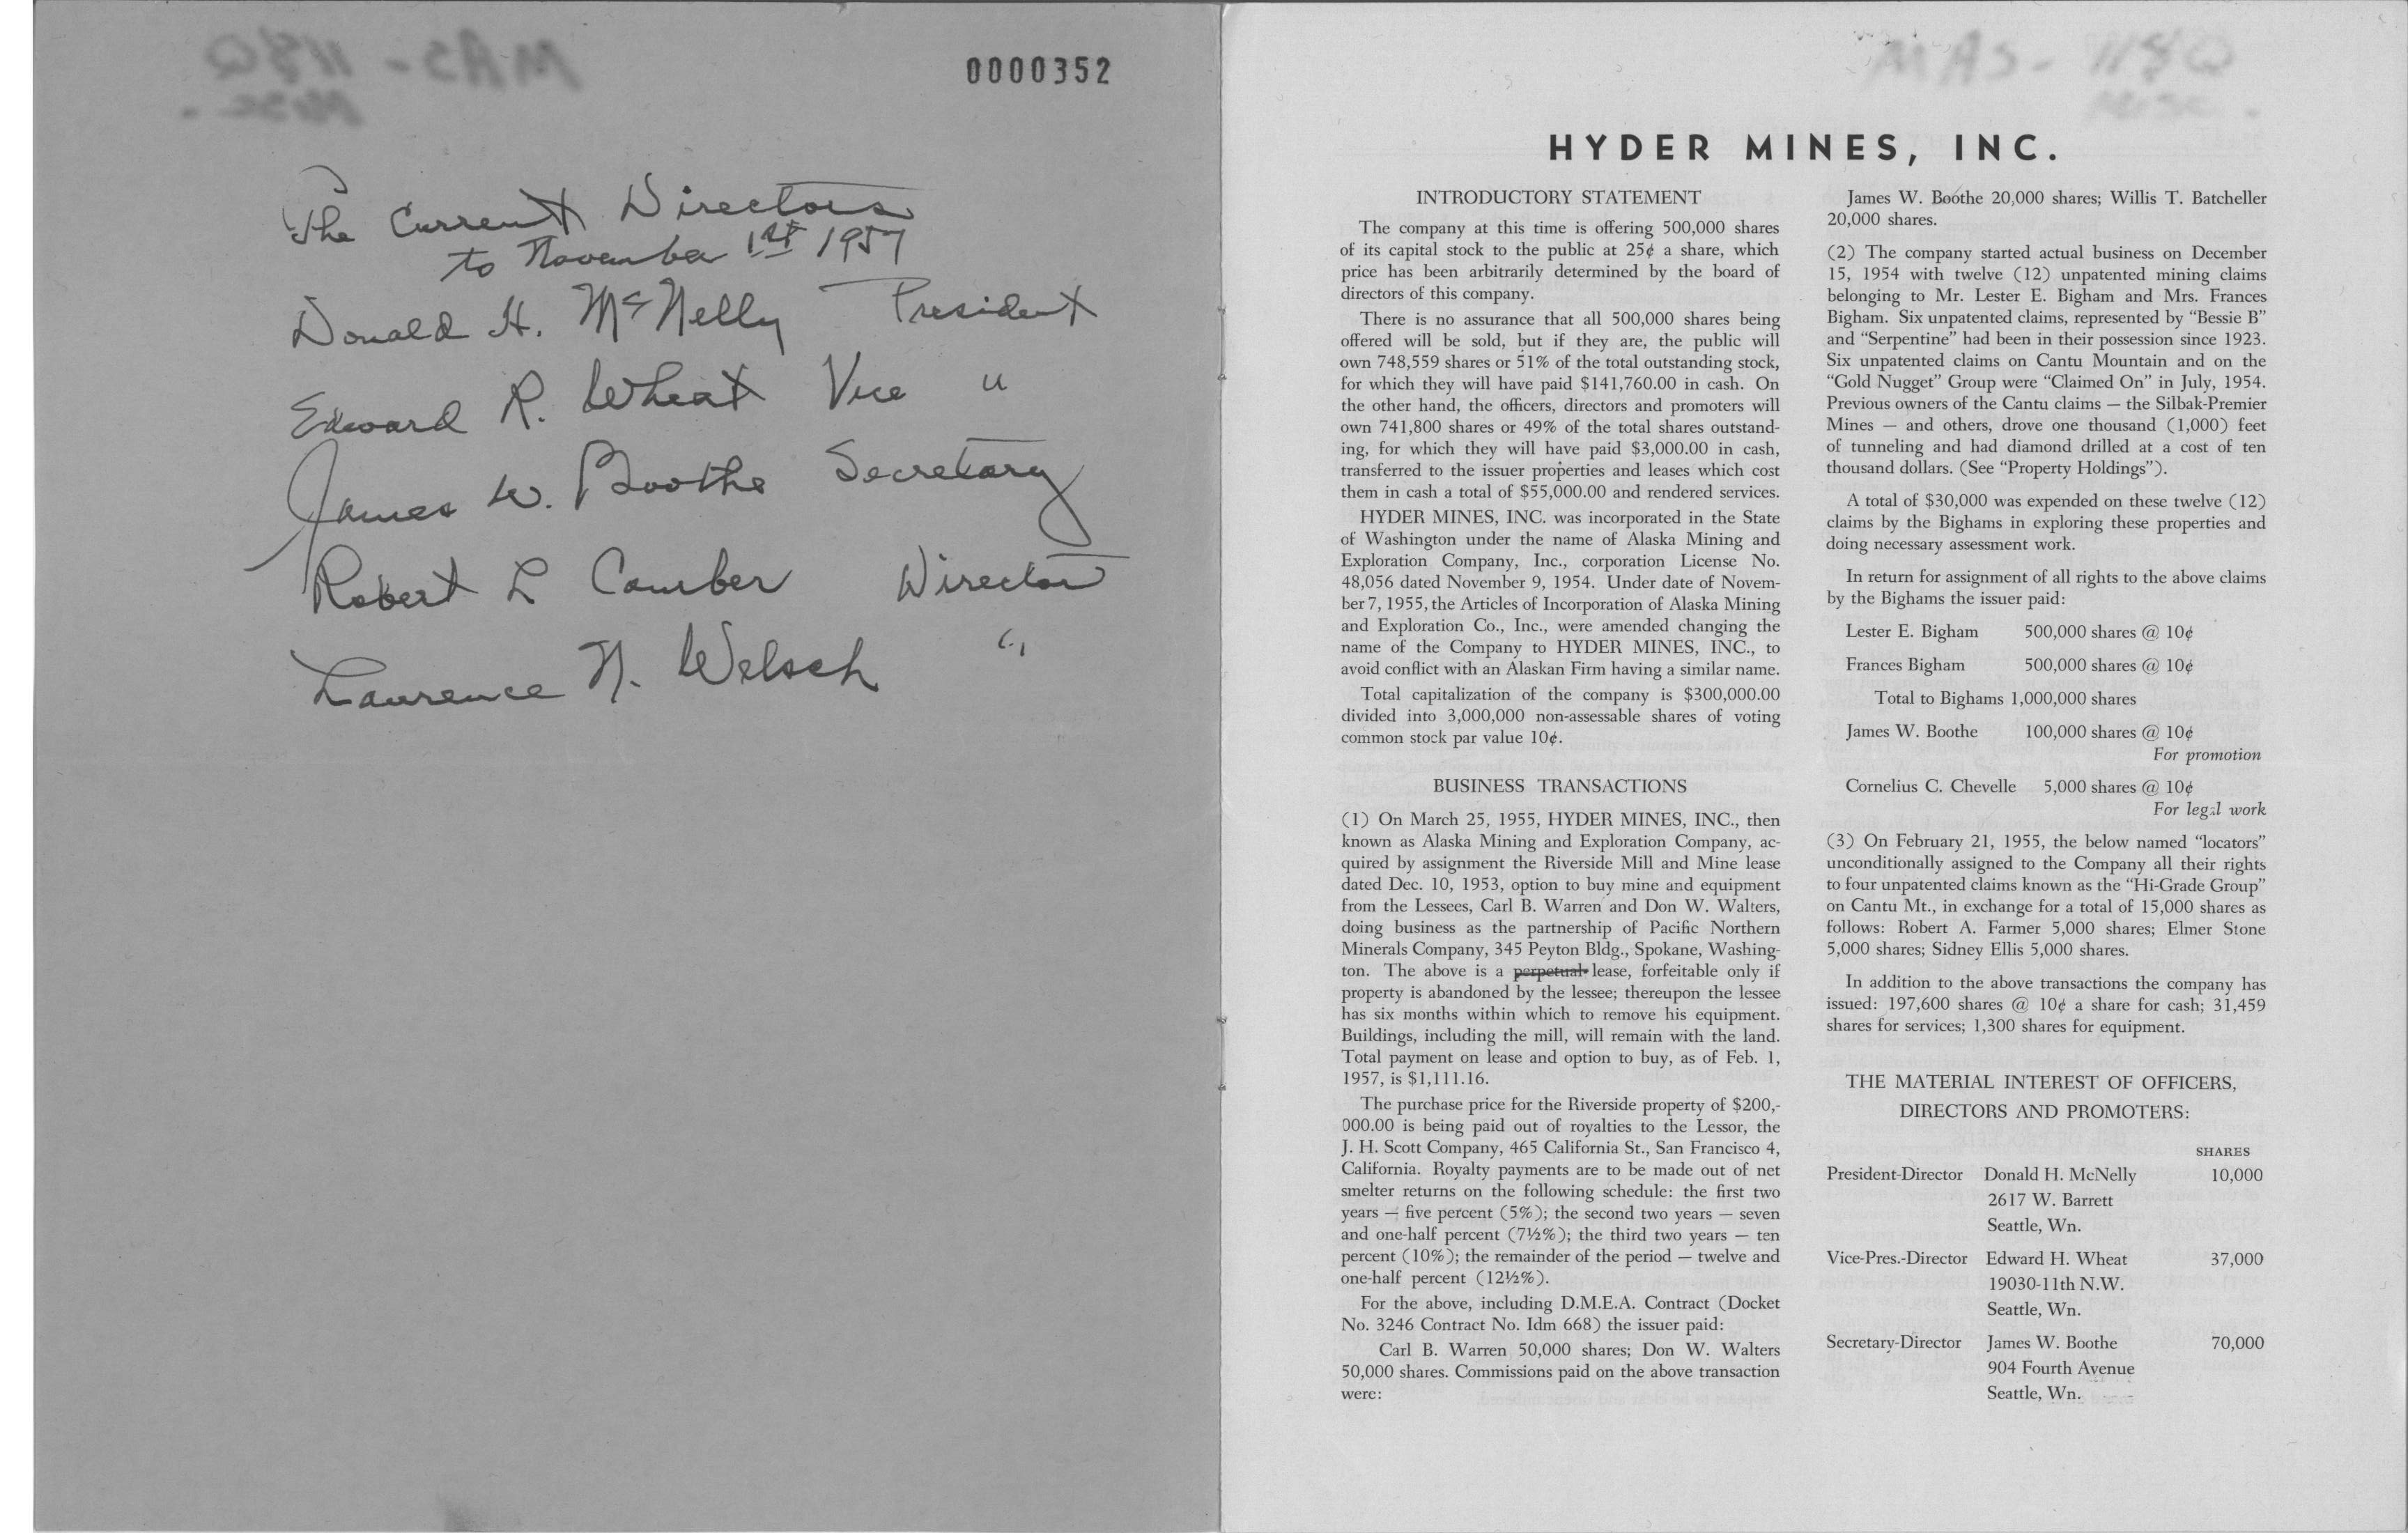 MAS - 118Q
0000352
The Current Directors
to November 1st 1957
Donald H. McNelly President
Edward R. Wheat Vice "
James W. Boothe Secretary
Robert L Comber Director
Laurence N. Welsch "
MAS - 118Q
HYDER MINES, INC.
INTRODUCTORY STATEMENT
The company at this time is offering 500,000 shares
of its capital stock to the public at 25¢ a share, which
price has been arbitrarily determined by the board of
directors of this company.
There is no assurance that all 500,000 shares being
offered will be sold, but if they are, the public will
own 748,559 shares or 51% of the total outstanding stock,
for which they will have paid $141,760.00 in cash. On
the other hand, the officers, directors and promoters will
own 741,800 shares or 49% of the total shares outstand-
ing, for which they will have paid $3,000.00 in cash,
transferred to the issuer properties and leases which cost
them in cash a total of $55,000.00 and rendered services.
HYDER MINES, INC. was incorporated in the State
of Washington under the name of Alaska Mining and
Exploration Company, Inc., corporation License No.
48,056 dated November 9, 1954. Under date of Novem-
ber 7, 1955, the Articles of Incorporation of Alaska Mining
and Exploration Co., Inc., were amended changing the
name of the Company to HYDER MINES, INC., to
avoid conflict with an Alaskan Firm having a similar name.
Total capitalization of the company is $300,000.00
divided into 3,000,000 non-assessable shares of voting
common stock par value 10¢.
BUSINESS TRANSACTIONS
(1) On March 25, 1955, HYDER MINES, INC., then
known as Alaska Mining and Exploration Company, ac-
quired by assignment the Riverside Mill and Mine lease
dated Dec. 10, 1953, option to buy mine and equipment
from the Lessees, Carl B. Warren and Don W. Walters,
doing business as the partnership of Pacific Northern
Minerals Company, 345 Peyton Bldg., Spokane, Washing-
ton. The above is a perpetual lease, forfeitable only if
property is abandoned by the lessee; thereupon the lessee
has six months within which to remove his equipment.
Buildings, including the mill, will remain with the land.
Total payment on lease and option to buy, as of Feb. 1,
1957, is $1,111.16.
The purchase price for the Riverside property of $200,-
000.00 is being paid out of royalties to the Lessor, the
J. H. Scott Company, 465 California St., San Francisco 4,
California. Royalty payments are to be made out of net
smelter returns on the following schedule: the first two
years — five percent (5%); the second two years — seven
and one-half percent (7½%); the third two years — ten
percent (10%); the remainder of the period — twelve and
one-half percent (12½%).
For the above, including D.M.E.A. Contract (Docket
No. 3246 Contract No. Idm 668) the issuer paid:
Carl B. Warren 50,000 shares; Don W. Walters
50,000 shares. Commissions paid on the above transaction
were:
James W. Boothe 20,000 shares; Willis T. Batcheller
20,000 shares.
(2) The company started actual business on December
15, 1954 with twelve (12) unpatented mining claims
belonging to Mr. Lester E. Bigham and Mrs. Frances
Bigham. Six unpatented claims, represented by "Bessie B"
and "Serpentine" had been in their possession since 1923.
Six unpatented claims on Cantu Mountain and on the
"Gold Nugget" Group were "Claimed On" in July, 1954.
Previous owners of the Cantu claims — the Silbak-Premier
Mines — and others, drove one thousand (1,000) feet
of tunneling and had diamond drilled at a cost of ten
thousand dollars. (See "Property Holdings").
A total of $30,000 was expended on these twelve (12)
claims by the Bighams in exploring these properties and
doing necessary assessment work.
In return for assignment of all rights to the above claims
by the Bighams the issuer paid:
Lester E. Bigham 500,000 shares @ 10¢
Frances Bigham 500,000 shares @ 10¢
Total to Bighams 1,000,000 shares
James W. Boothe 100,000 shares @ 10¢
For promotion
Cornelius C. Chevelle 5,000 shares @ 10¢
For legal work
(3) On February 21, 1955, the below named "locators"
unconditionally assigned to the Company all their rights
to four unpatented claims known as the "Hi-Grade Group"
on Cantu Mt., in exchange for a total of 15,000 shares as
follows: Robert A. Farmer 5,000 shares; Elmer Stone
5,000 shares; Sidney Ellis 5,000 shares.
In addition to the above transactions the company has
issued: 197,600 shares @ 10¢ a share for cash; 31,459
shares for services; 1,300 shares for equipment.
THE MATERIAL INTEREST OF OFFICERS,
DIRECTORS AND PROMOTERS:
SHARES
President-Director Donald H. McNelly 10,000
2617 W. Barrett
Seattle, Wn.
Vice-Pres.-Director Edward H. Wheat 37,000
19030-11th N.W.
Seattle, Wn.
Secretary-Director James W. Boothe 70,000
904 Fourth Avenue
Seattle, Wn.